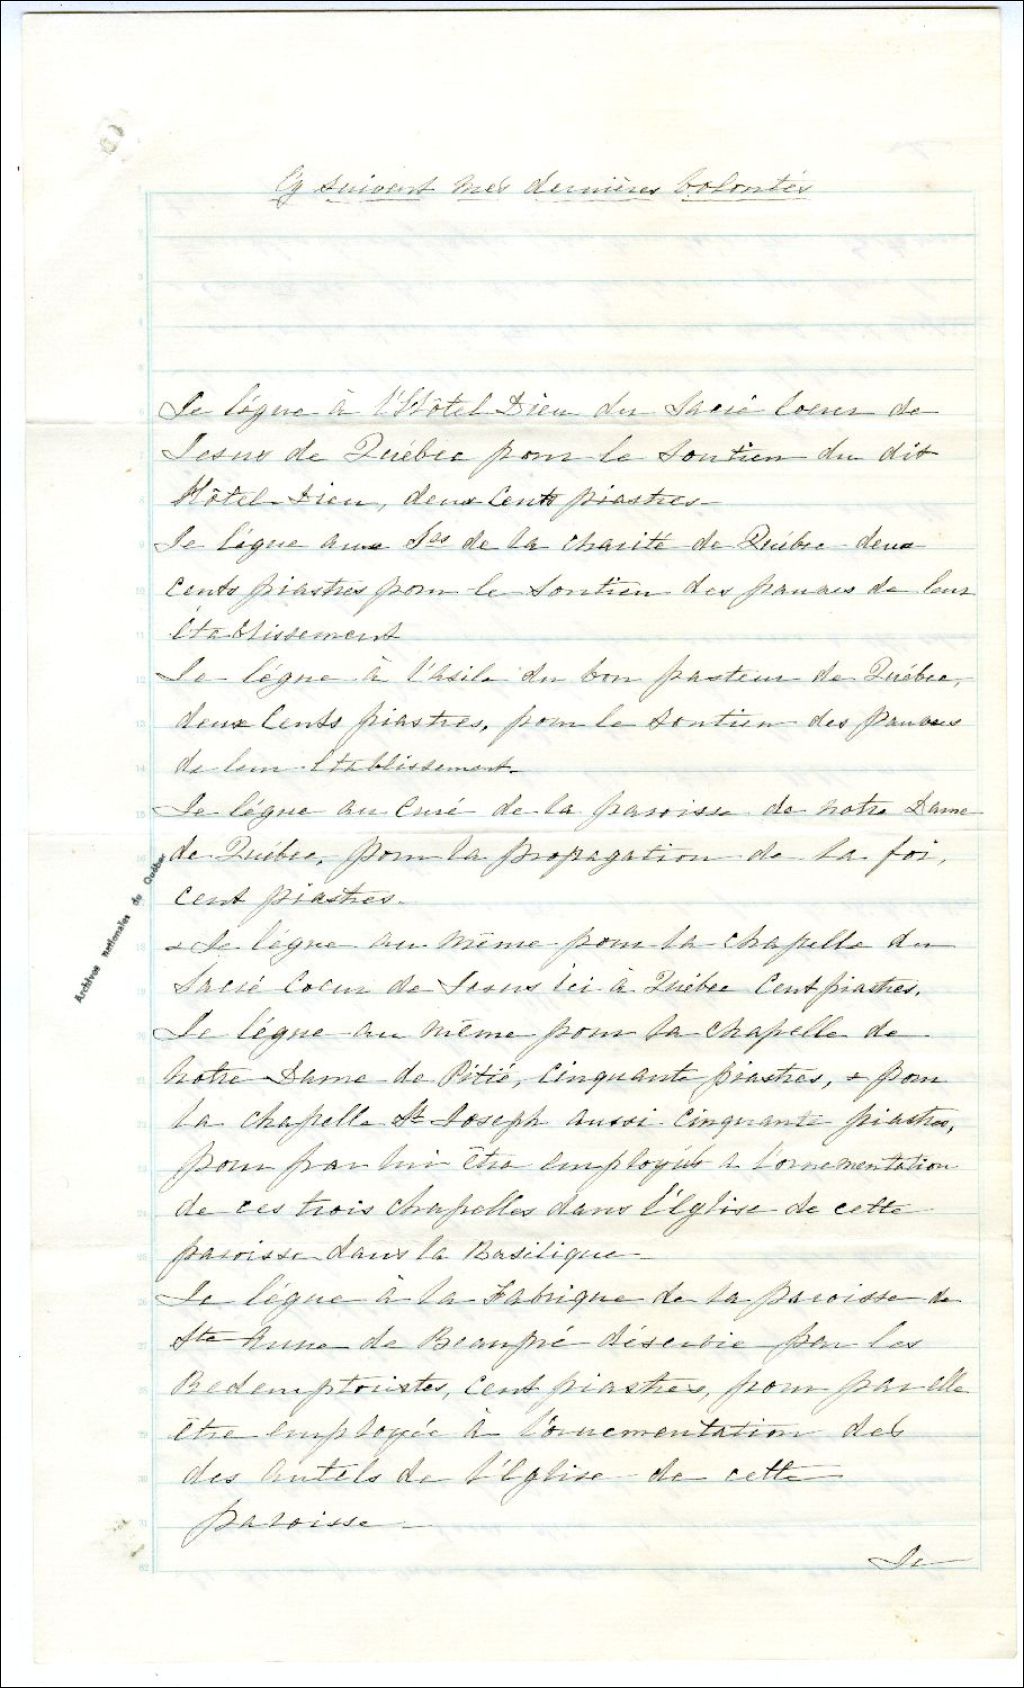 Cy suivent mes dernières volontés
Je légue à l'Hôtel Dieu du Sacré Coeur de
Jesus de Québec pour le soutien du dit
Hôtel-Dieu, deux cents piastres
Je légue aux Srs de la charité de Québec deux
cents piastres pour le soutien des pauvres de leur
établissement
Je légue à l'Asile du bon pasteur de Québec,
deux cents piastres, pour le soutien des pauvres
de leur établissement.
Je légue au curé de la paroisse de notre Dame
de Québec, pour la propagation de la foi,
cent piastres.
& Je légue au même pour la chapelle du
Sacré Coeur de Jesus ici à Québec cent piastres.
Je légue au même pour la chapelle de
notre Dame de Pitié, cinquante piastres, & pour
la chapelle St Joseph aussi cinquante piastres,
pour par lui être employés à l'ornementation
de ces trois chapelles dans l'Eglise de cette
paroisse dans la Basilique
Je légue à la Fabrique de la paroisse de
Ste Anne de Beaupré déservie par les
Redemptoristes, cent piastres, pour par elle
être employée à l'ornementation des
des autels de l'Eglise de cette
paroisse
Je
Archives nationales du Québec